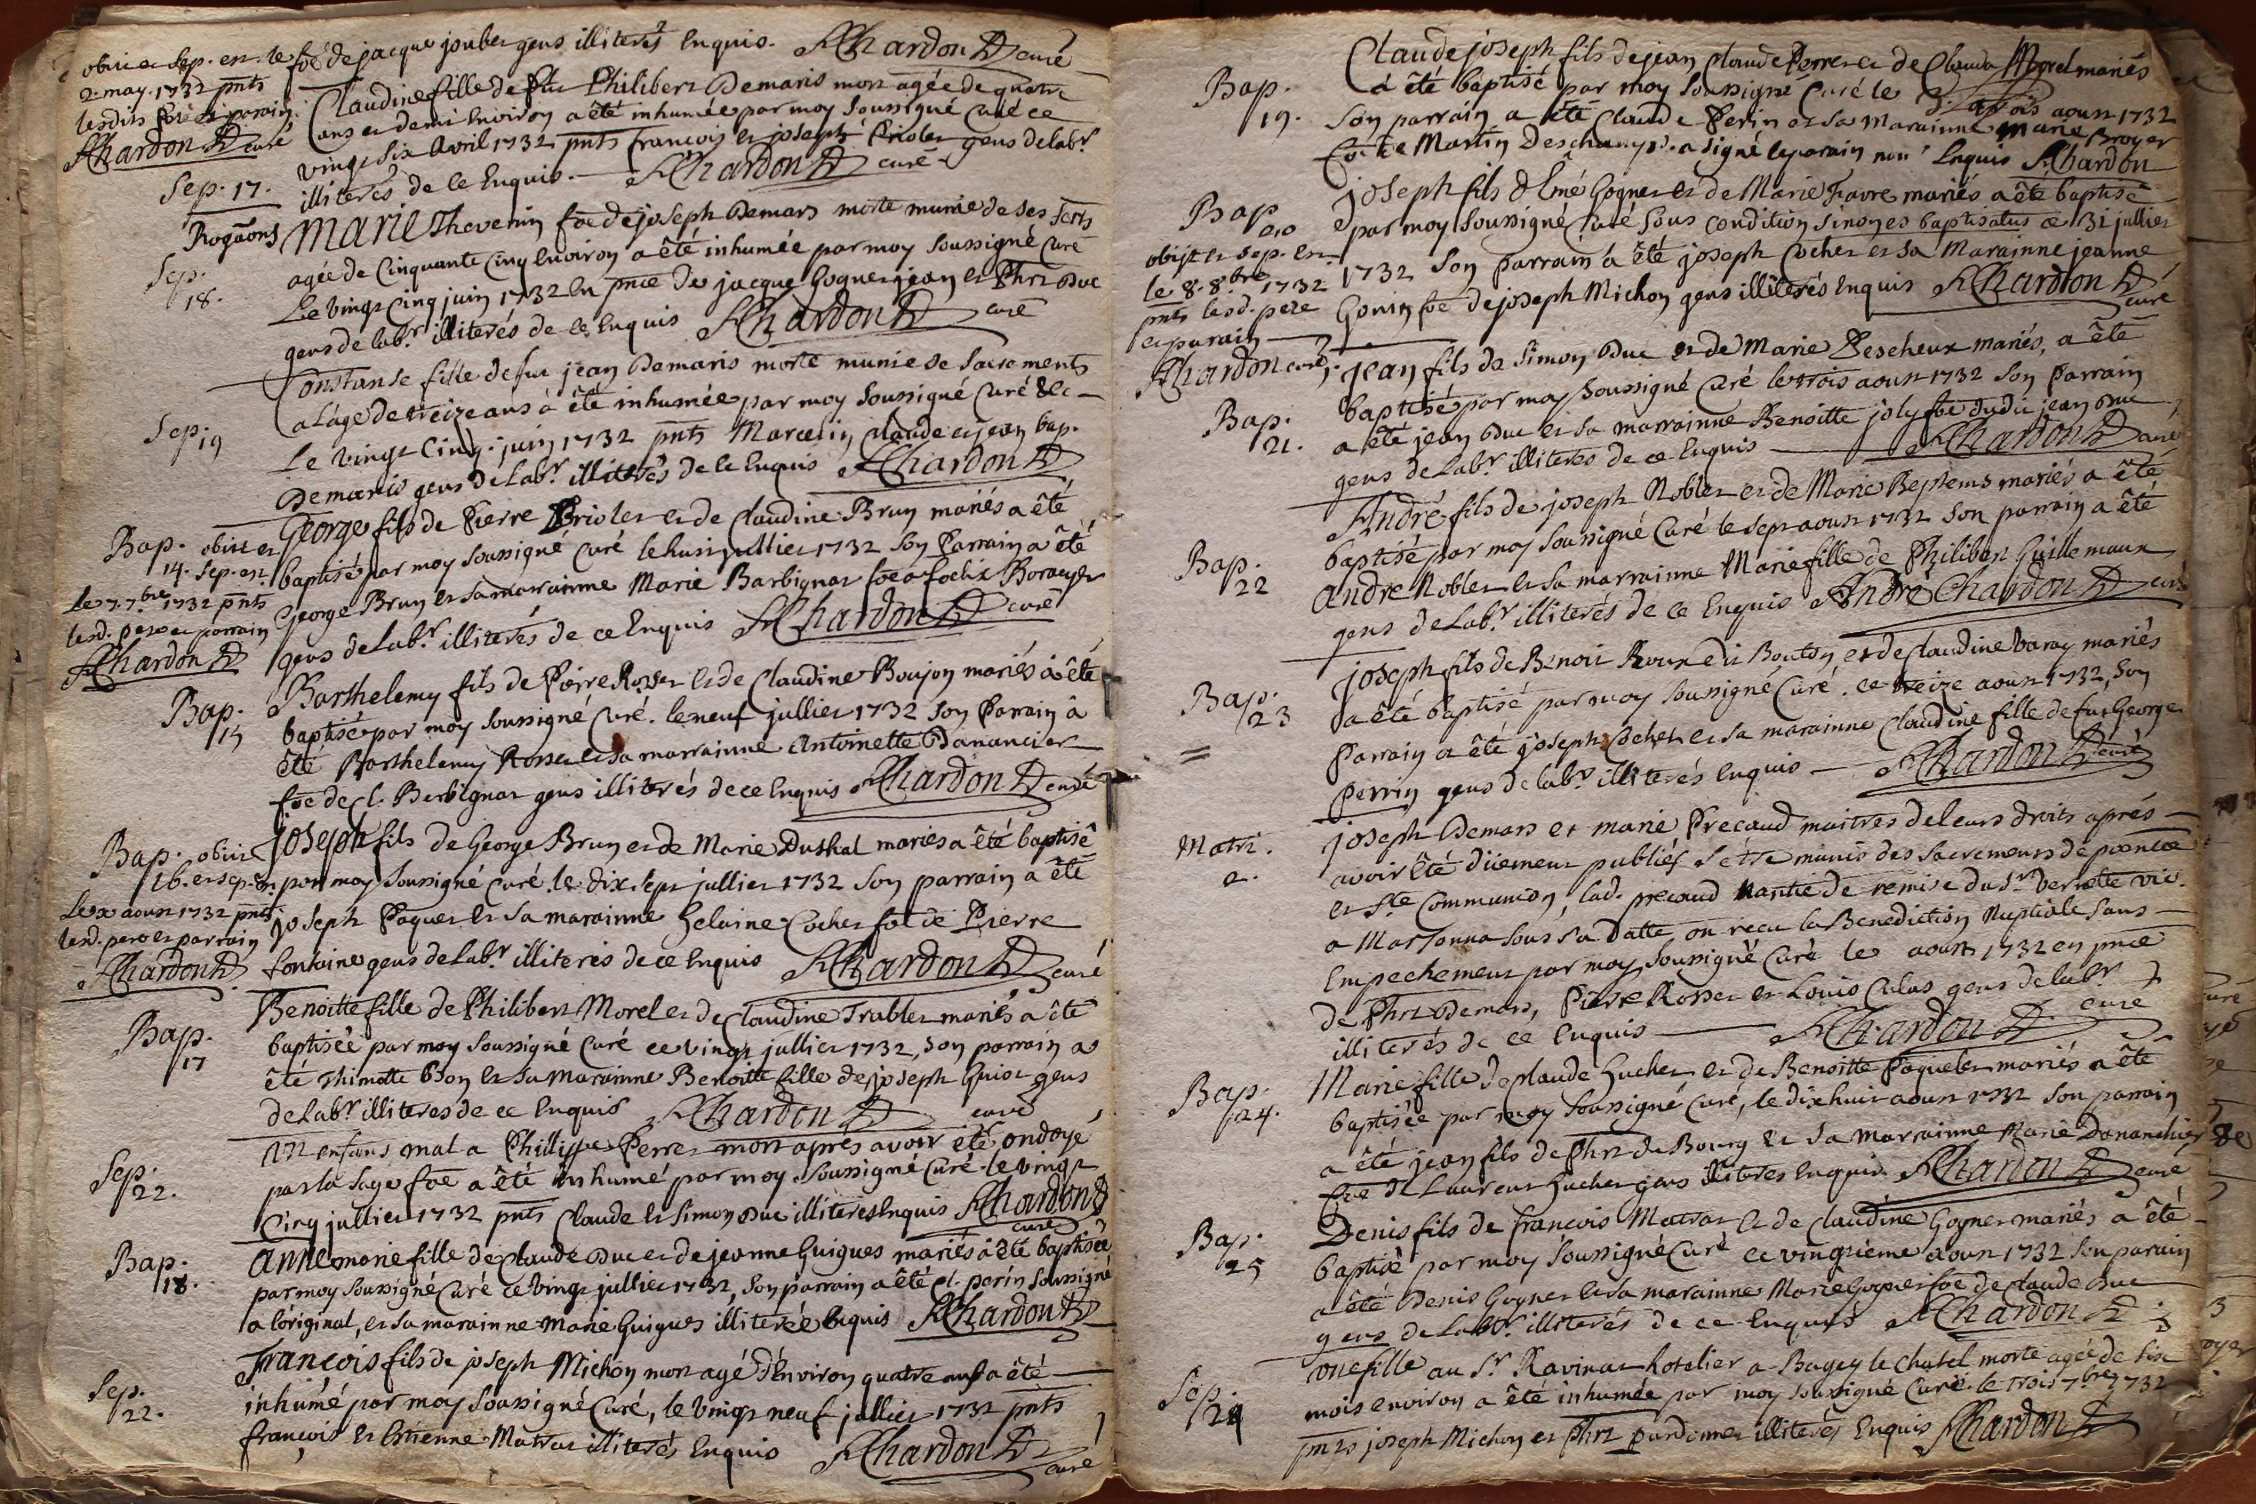 obiit et sep. est le
2. may. 1732 pnts
lesdits père et parrain
AChardon curé
foe de jacque joubert gens illiterés Enquis. AChardon curé
Claudine fille de feu Philibert Demaris mort agée de quatre
ans et demi Environ a été inhumée par moy soussigné Curé ce
vingt six Avril 1732 pnts francois et joseph Priolet gens de labr
illiterés de ce Enquis. AChardon curé
Sep. 17.
Rogaons
Sep.
18.
Marie Thevenin foe de joseph Demars morte munie de ses Scrts
agée de Cinquante Cinq Environ a été inhumée par moy soussigné Curé
Le vingt Cinq juin 1732 En pnce de jacque Gognet jean et Phrt Duc
gens de labr illiterés de ce Enquis AChardon curé
Constanse fille de feu jean Demaris morte munie de Sacrements
a Láge de treize ans á été inhumée par moy soussigné Curé &c
Sep.
19
Le vingt Cinq juin 1732 pnts Marcelin Claude et jean bap.
Demaris gens de Labr illiterés de ce Enquis AChardon
Bap. obiit et
14. Sep. est
Le 7. 7bre 1732 pnts
lesd. pere et parrain
AChardon
George fils de Pierre Priolet et de Claudine Brun mariés a été
baptisé par moy soussigné Curé le huit jullier 1732 Son Parrain a été
George Brun et sa marrainne Marie Barbignat foe a foelix Boranyer
gens de Labr illiterés de ce Enquis AChardon curé
Bap.
15
Barthelemy fils de Pierre Rosset et de Claudine Boujon mariés à été
baptisé par moy soussigné Curé. le neuf jullier 1732 Son Parrain à
été Barthelemy Rosset et sa marrainne Antoinette Danancier
foe de Cl. Berbignat gens illiterés de ce Enquis AChardon curé
Bap. obiit
16. et sep. est
Le x aoust 1732 pnts
lesd. pere et parrain
AChardon
joseph fils de George Brun et de Marie Duthal mariés a été baptisé
par moy soussigné Curé le dix sept jullier 1732 Son parrain a été
joseph Paquet et sa marainne Helaine Cochet foe de Pierre
fontaine gens de Labr illiterés de ce Enquis AChardon curé
Bap.
17
Benoitte fille de Philibert Morel et de Claudine Trablet mariés a été
baptisée par moy soussigné Curé ce vingt jullier 1732, Son parrain a
été Thimotte Bon et sa marainne Benoitte fille de joseph Guiot gens
de Labr illiterés de ce Enquis AChardon curé
Sep.
22.
Un enfant mal a Phillippe Perret mort après avoir été ondoyé
par la sage foe a été inhumé par moy soussigné Curé le vingt
Cinq jullier 1732 pnts Claude et Simon Duc illiterés Enquis AChardon curé
Bap.
18.
Anne marie fille de Claude Duc et de jeanne Guigues mariés á été baptisée
par moy soussigné Curé ce vingt jullier 1732, Son parrain a été Cl. perin soussigné
a l'original, et sa marainne Marie Guigues illiterée Enquis AChardon
Sep.
22.
François fils de joseph Michon mort agé d'Environ quatre ans a été
inhumé par moy soussigné Curé, le vingt neuf jullier 1732 pnts
françois et Etienne Matrat illiterés Enquis AChardon curé
Bap.
19.
Claude joseph fils de jean Claude Perret et de Claude Morel mariés
á été baptisé par moy soussigné Curé le 3. trois aoust 1732
Son parrain a été Claude Perin et sa Marainne Marie Broyer
foe de Martin Deschamps. a signé le parain non Enquis AChardon
Bap
20
obijt et sep. est
le 8. 8bre 1732
pnts lesd. pere
et parain
AChardon curé
joseph fils d'Emé Gognet et de Marie Favre mariés a été baptisé
par moy soussigné Curé sous condition si non es baptisatus ce 31 jullier
1732 Son Parrain a été joseph Cochet et sa Marainne jeanne
Gonin foe de joseph Michon gens illiterés Enquis AChardon curé
Bap.
21.
jean fils de Simon Duc et de Marie Descheux mariés, a été
baptisé par moy soussigné Curé le trois aoust 1732 Son Parrain
a été jean Duc et sa marrainne Benoitte joly foe dudit jean Duc
gens de Labr illiterés de ce Enquis AChardon curé
Bap.
22
André fils de joseph Noblet et de Marie Beptems mariés a été
baptisé par moy soussigné Curé le sept aoust 1732 Son parrain a été
André Noblet et sa marrainne Marie fille de Philibert Guillemaux
gens de Labr illiterés de ce Enquis André Chardon curé
Bap.
23
joseph fils de Benoit Roux dit Bouton et de Claudine Varay mariés
a été baptisé par moy soussigné Curé. ce treize aoust 1732, Son
Parrain a été joseph Cochet et sa marainne Claudine fille de feu George
Perrin gens de labr illiterés Enquis AChardon curé
Matri.
2.
joseph Demars et marie Precaud maitres de leurs droits aprés
avoir été düement publiés s'étre munis des sacrements de poenitce
et Ste Communion, lad. precaud Nantie de remise du Sr Verrette vic.
a Marsonna sous sa Datte on reçu la Benediction Nuptiale sans
Empechement par moy soussigné Curé le aoust 1732 en pnce
de Phrt Demars, Pierre Rosset et Louis Calas gens de labr
illiterés de ce Enquis AChardon curé
Bap.
24.
Marie fille de Claude Huchet et de Benoitte Paquelet mariés a été
baptisée par moy soussigné Curé, le dix huit aoust 1732 Son parrain
a été jean fils de Phrt du Bourg et sa marrainne Marie Dananchier
foe de Laurent Huchet gens illiteres Enquis AChardon curé
Bap.
25
Denis fils de francois Matrat et de Claudine Gognet mariés a été
baptisé par moy soussigné Curé ce vingtième aoust 1732 Son parain
a été Denis Gognet et sa marainne Marie Gognet foe de Claude Duc
gens de Labr illiterés de ce Enquis AChardon
Sep.
24
Une fille au Sr Ravinat hotelier a Bagey le chatel morte agée de six
mois environ a été inhumée par moy soussigné Curé le trois 7bre 1732
pnts joseph Michon et Phrt pardonnet illiterés Enquis AChardon